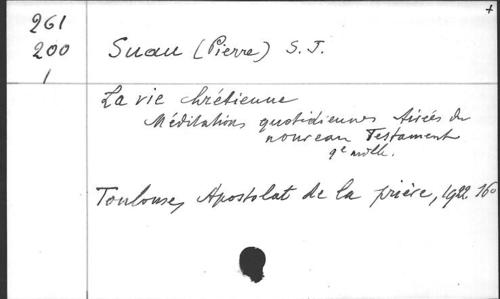 +
261
200
1
Suau (Pierre) S. J.
La vie chrétienne
Méditations quotidiennes tirées du
nouveau Testament
9e mille.
Toulouse, Apostolat de la prière, 1922 16°